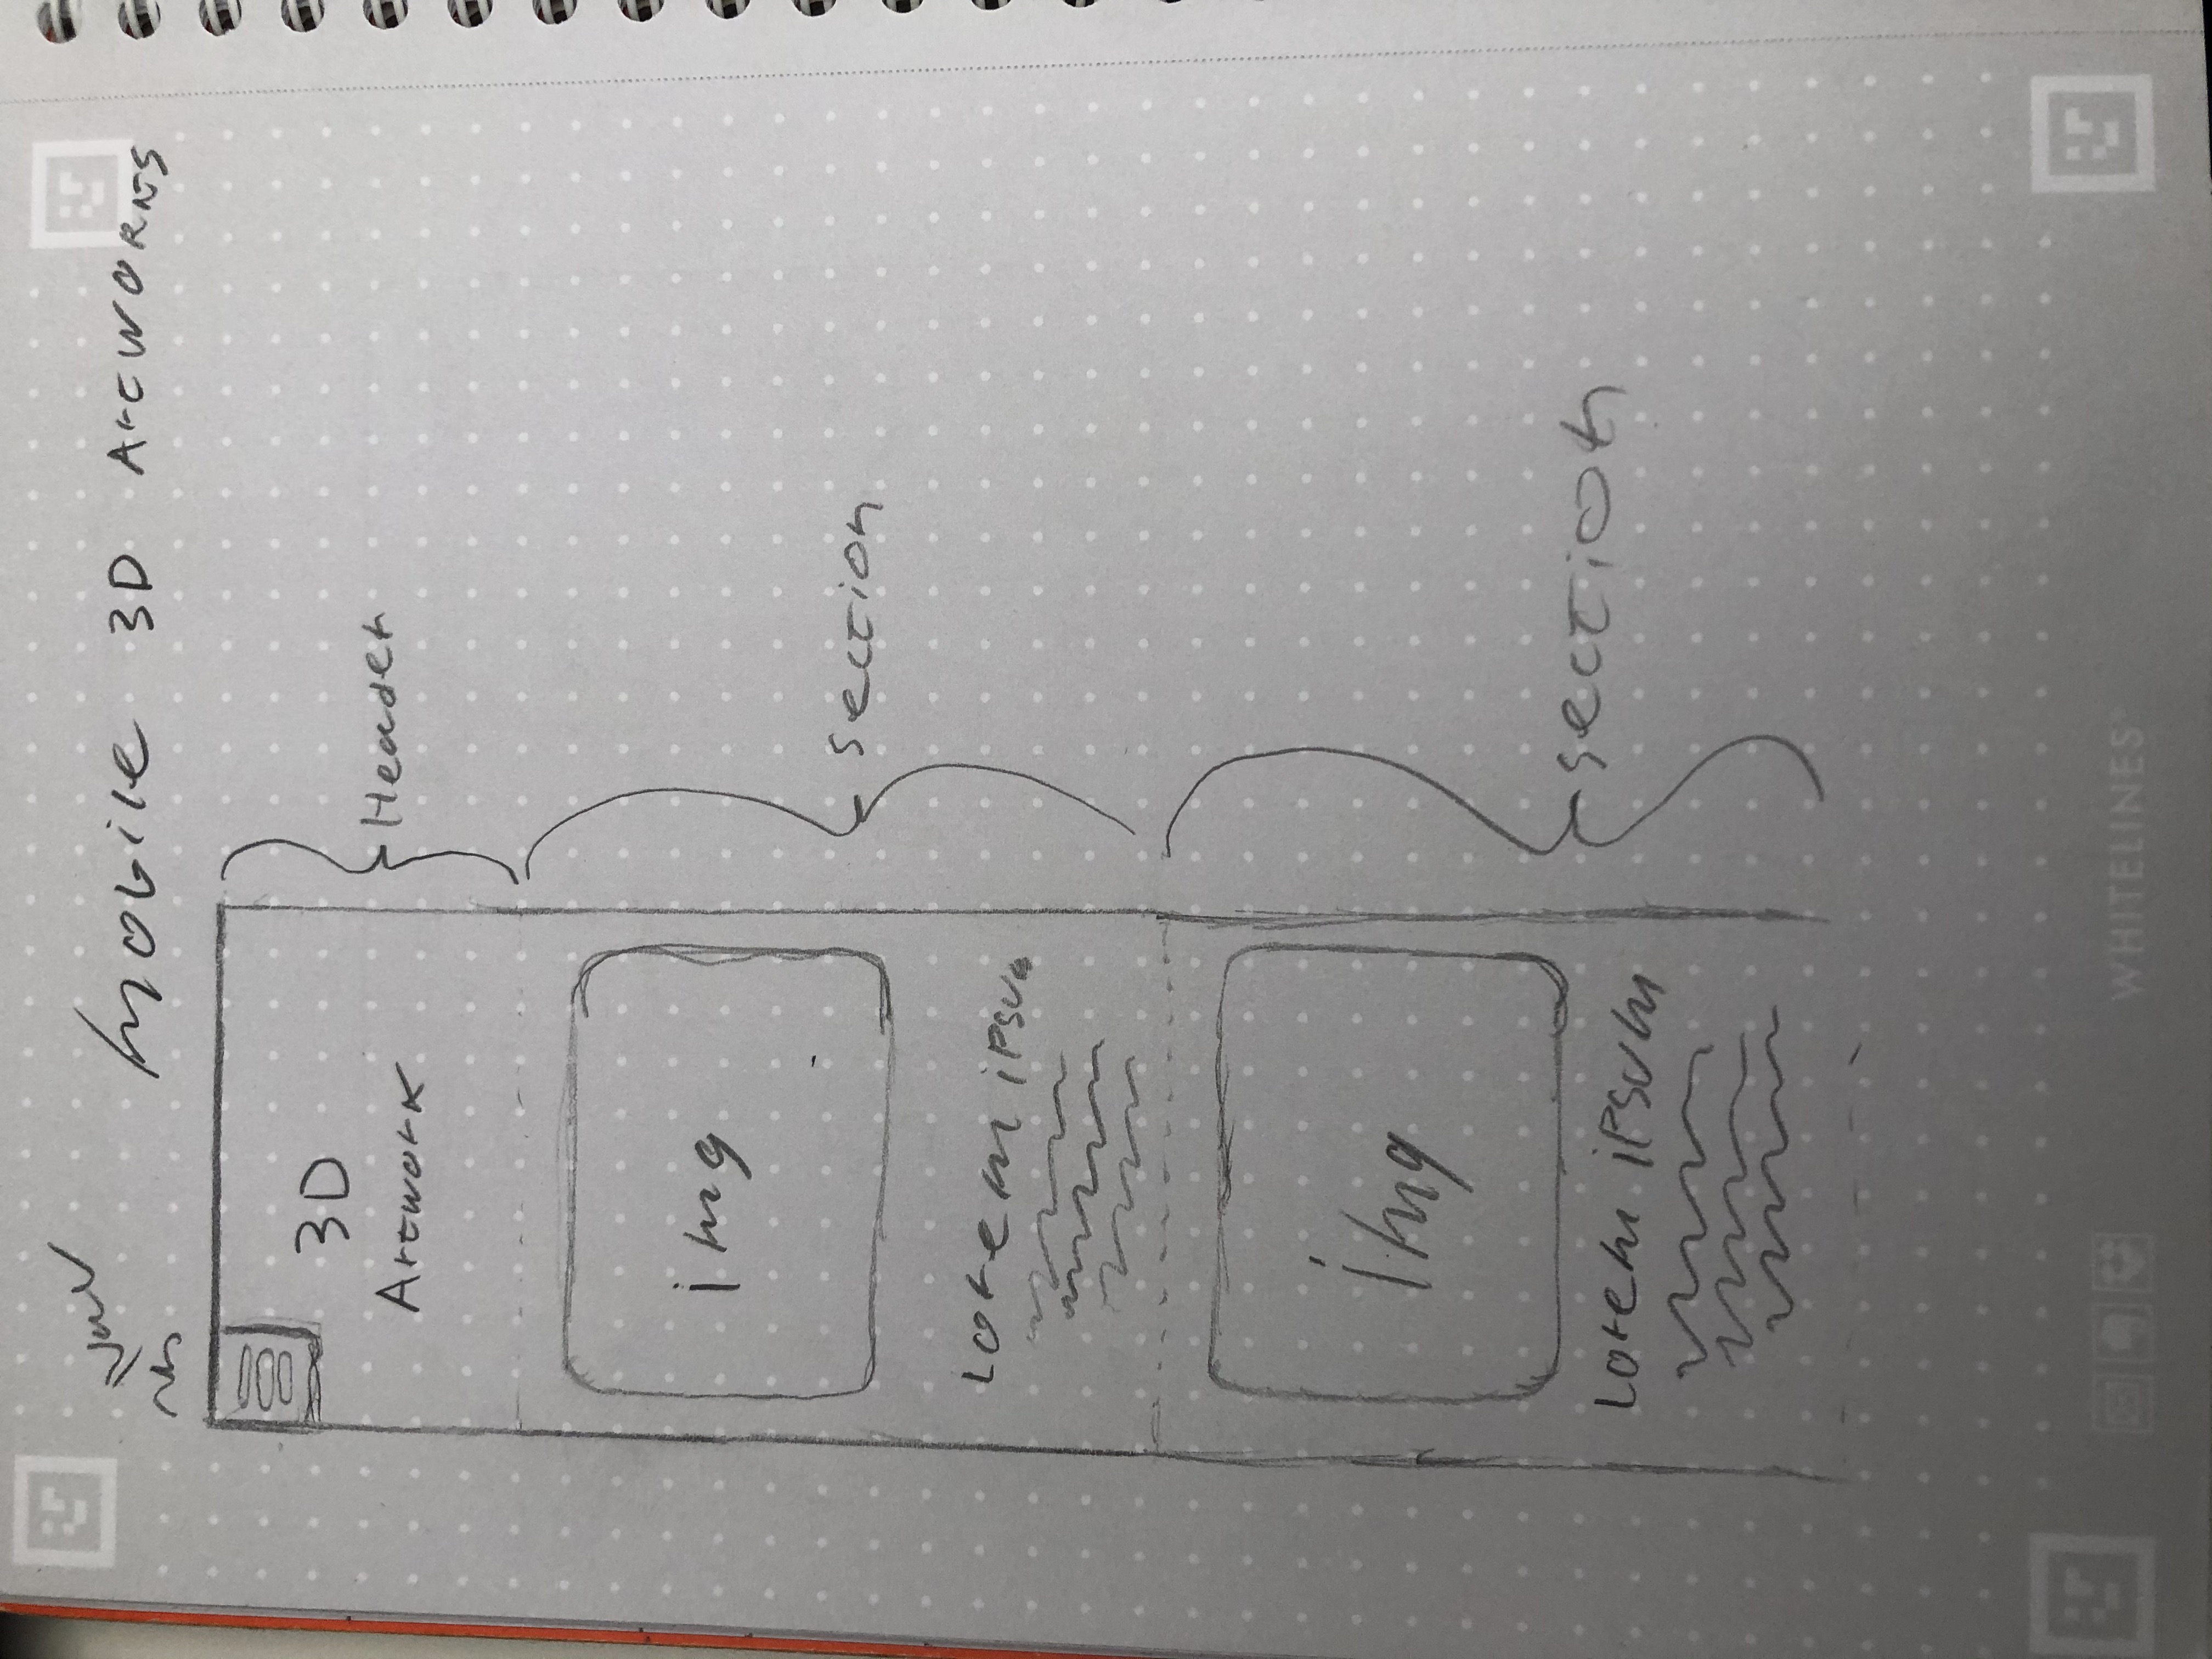 Nav
Mobile 3D Artworks
3D
Artwork
Header
img
section
Lorem ipsum
img
section
Lorem ipsum
WHITELINES®